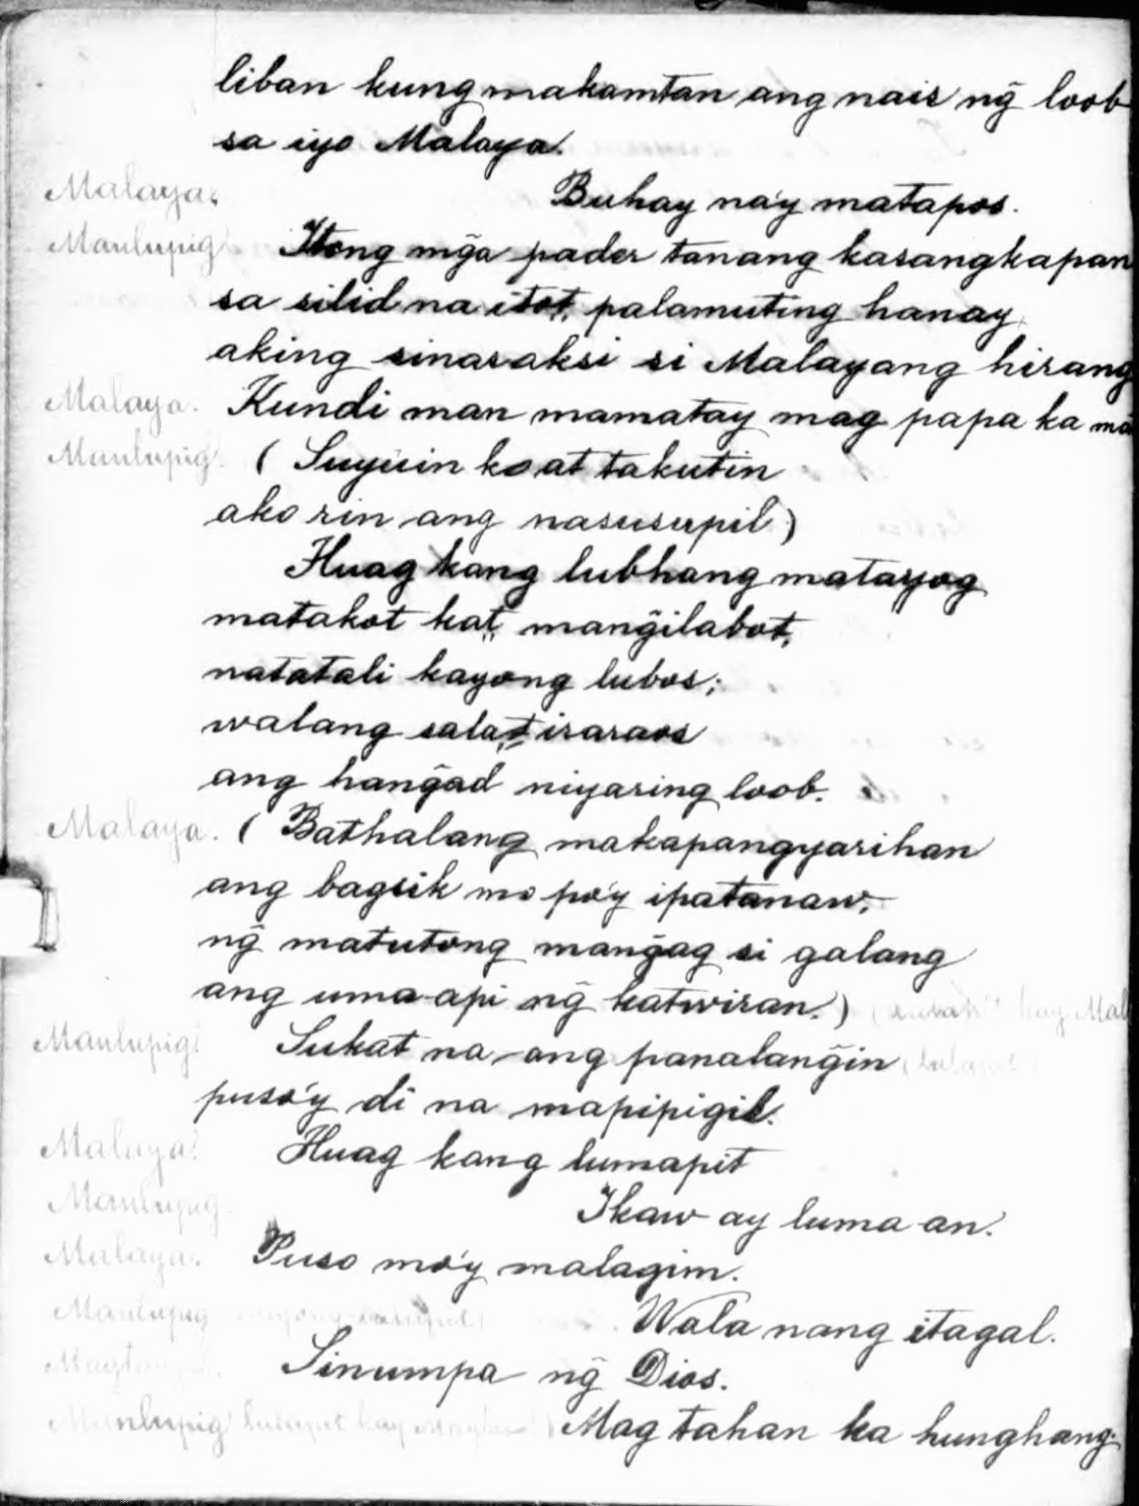 liban kung makamtan ang nais ng̃ loob
sa iyo Malaya.
Malaya. Buhay na'y matapos.
Manlupig Itong mg̃a pader tanang kasangkapan
sa silid na itot, palamuting hanay
aking sinasaksi si Malayang hirang
Malaya. Kundi man mamatay mag papa ka
Manlupig. ( Suyuin ko at takutin
ako rin ang nasusupil )
Huag kang lubhang matayog
matakot kat, mang̃ilabot,
natatali kayong lubos;
walang salat iraraos
ang hang̃ad niyaring loob.
Malaya. ( Bathalang makapangyarihan
ang bagsik mo po'y ipatanaw,
ng̃ matutong mang̃ag si galang
ang uma-api ng̃ katwiran. ) ( kay Mal
Manlupig. Sukat na ang panalang̃in
puso'y di na mapipigil.
Malaya. Huag kang lumapit
Manlupig. Ikaw ay luma an.
Malaya. Puso mo'y malagim.
Manlupig Wala nang itagal.
Sinumpa ng̃ Dios.
Manlupig kay Mag tahan ka hunghang.